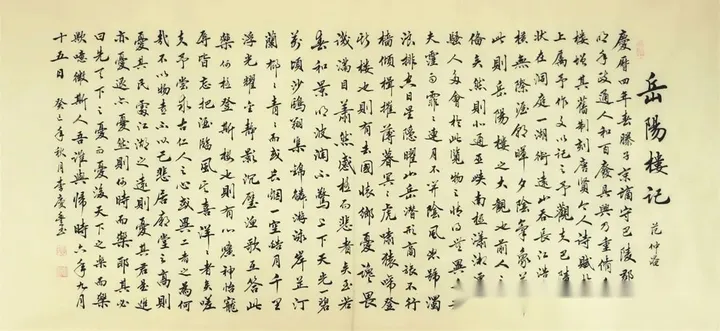 岳陽樓記
范仲淹
慶曆四年春滕子京謫守巴陵郡
明年政通人和百廢具興乃重脩
樓增其舊制刻唐賢今人詩賦於
上屬予作文以記之予觀夫巴陵
狀在洞庭一湖銜遠山吞長江浩
橫無際涯朝暉夕陰氣象萬
此則岳陽樓之大觀也前人之
備矣然則北通巫峽南極瀟湘
騷人多會於此覽物之情得無異
夫霪雨霏霏連月不開陰風怒號濁
浪排空日星隱曜山岳潛形商旅不行
檣傾楫摧薄暮冥冥虎嘯猿啼登
斯樓也則有去國懷鄉憂讒畏
譏滿目蕭然感極而悲者矣至若
春和景明波瀾不驚上下天光一碧
萬頃沙鷗翔集錦鱗游泳岸芷汀
蘭郁郁青青而或長煙一空皓月千里
浮光耀金靜影沉璧漁歌互答此
樂何極登斯樓也則有心曠神怡寵
辱皆忘把酒臨風其喜洋洋者矣嗟
夫予嘗求古仁人之心或異二者之為何
哉不以物喜不以己悲居廟堂之高則
憂其民處江湖之遠則憂其君是進
亦憂退亦憂然則何時而樂耶其必
曰先天下之憂而憂後天下之樂而樂
歟噫微斯人吾誰與歸時六年九月
十五日 癸巳年秋月李慶